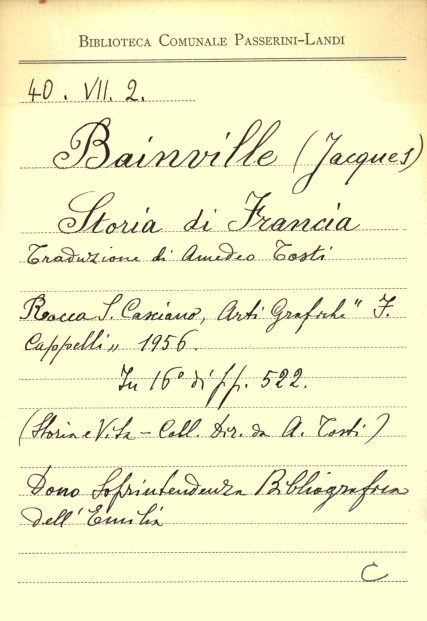 BIBLIOTECA COMUNALE PASSERINI-LANDI
40. VII. 2.
Bainville (Jacques)
Storia di Francia
Traduzione di Amedeo Tosti
Rocca S. Casciano, Arti Grafiche " F.
Cappelli „ 1956.
In 16° di pp. 522.
(Storia e Vita - Coll. Dir. da A. Tosti)
Dono Soprintendenza Bibliografica
dell'Emilia
C